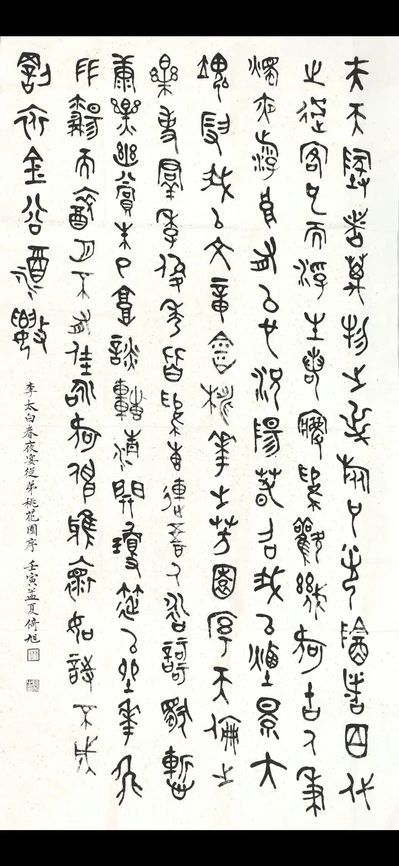 夫天地者萬物之逆旅也光陰者百代
之過客也而浮生若夢為歡幾何古人秉
燭夜遊良有以也況陽春召我以煙景大
塊假我以文章會桃李之芳園序天倫之
樂事群季俊秀皆為惠連吾人詠歌獨慚
康樂幽賞未已高談轉清開瓊筵以坐花飛
羽觴而醉月不有佳詠何伸雅懷如詩不成
罰依金谷酒數
李太白春夜宴從弟桃花園序 壬寅孟夏倚旭